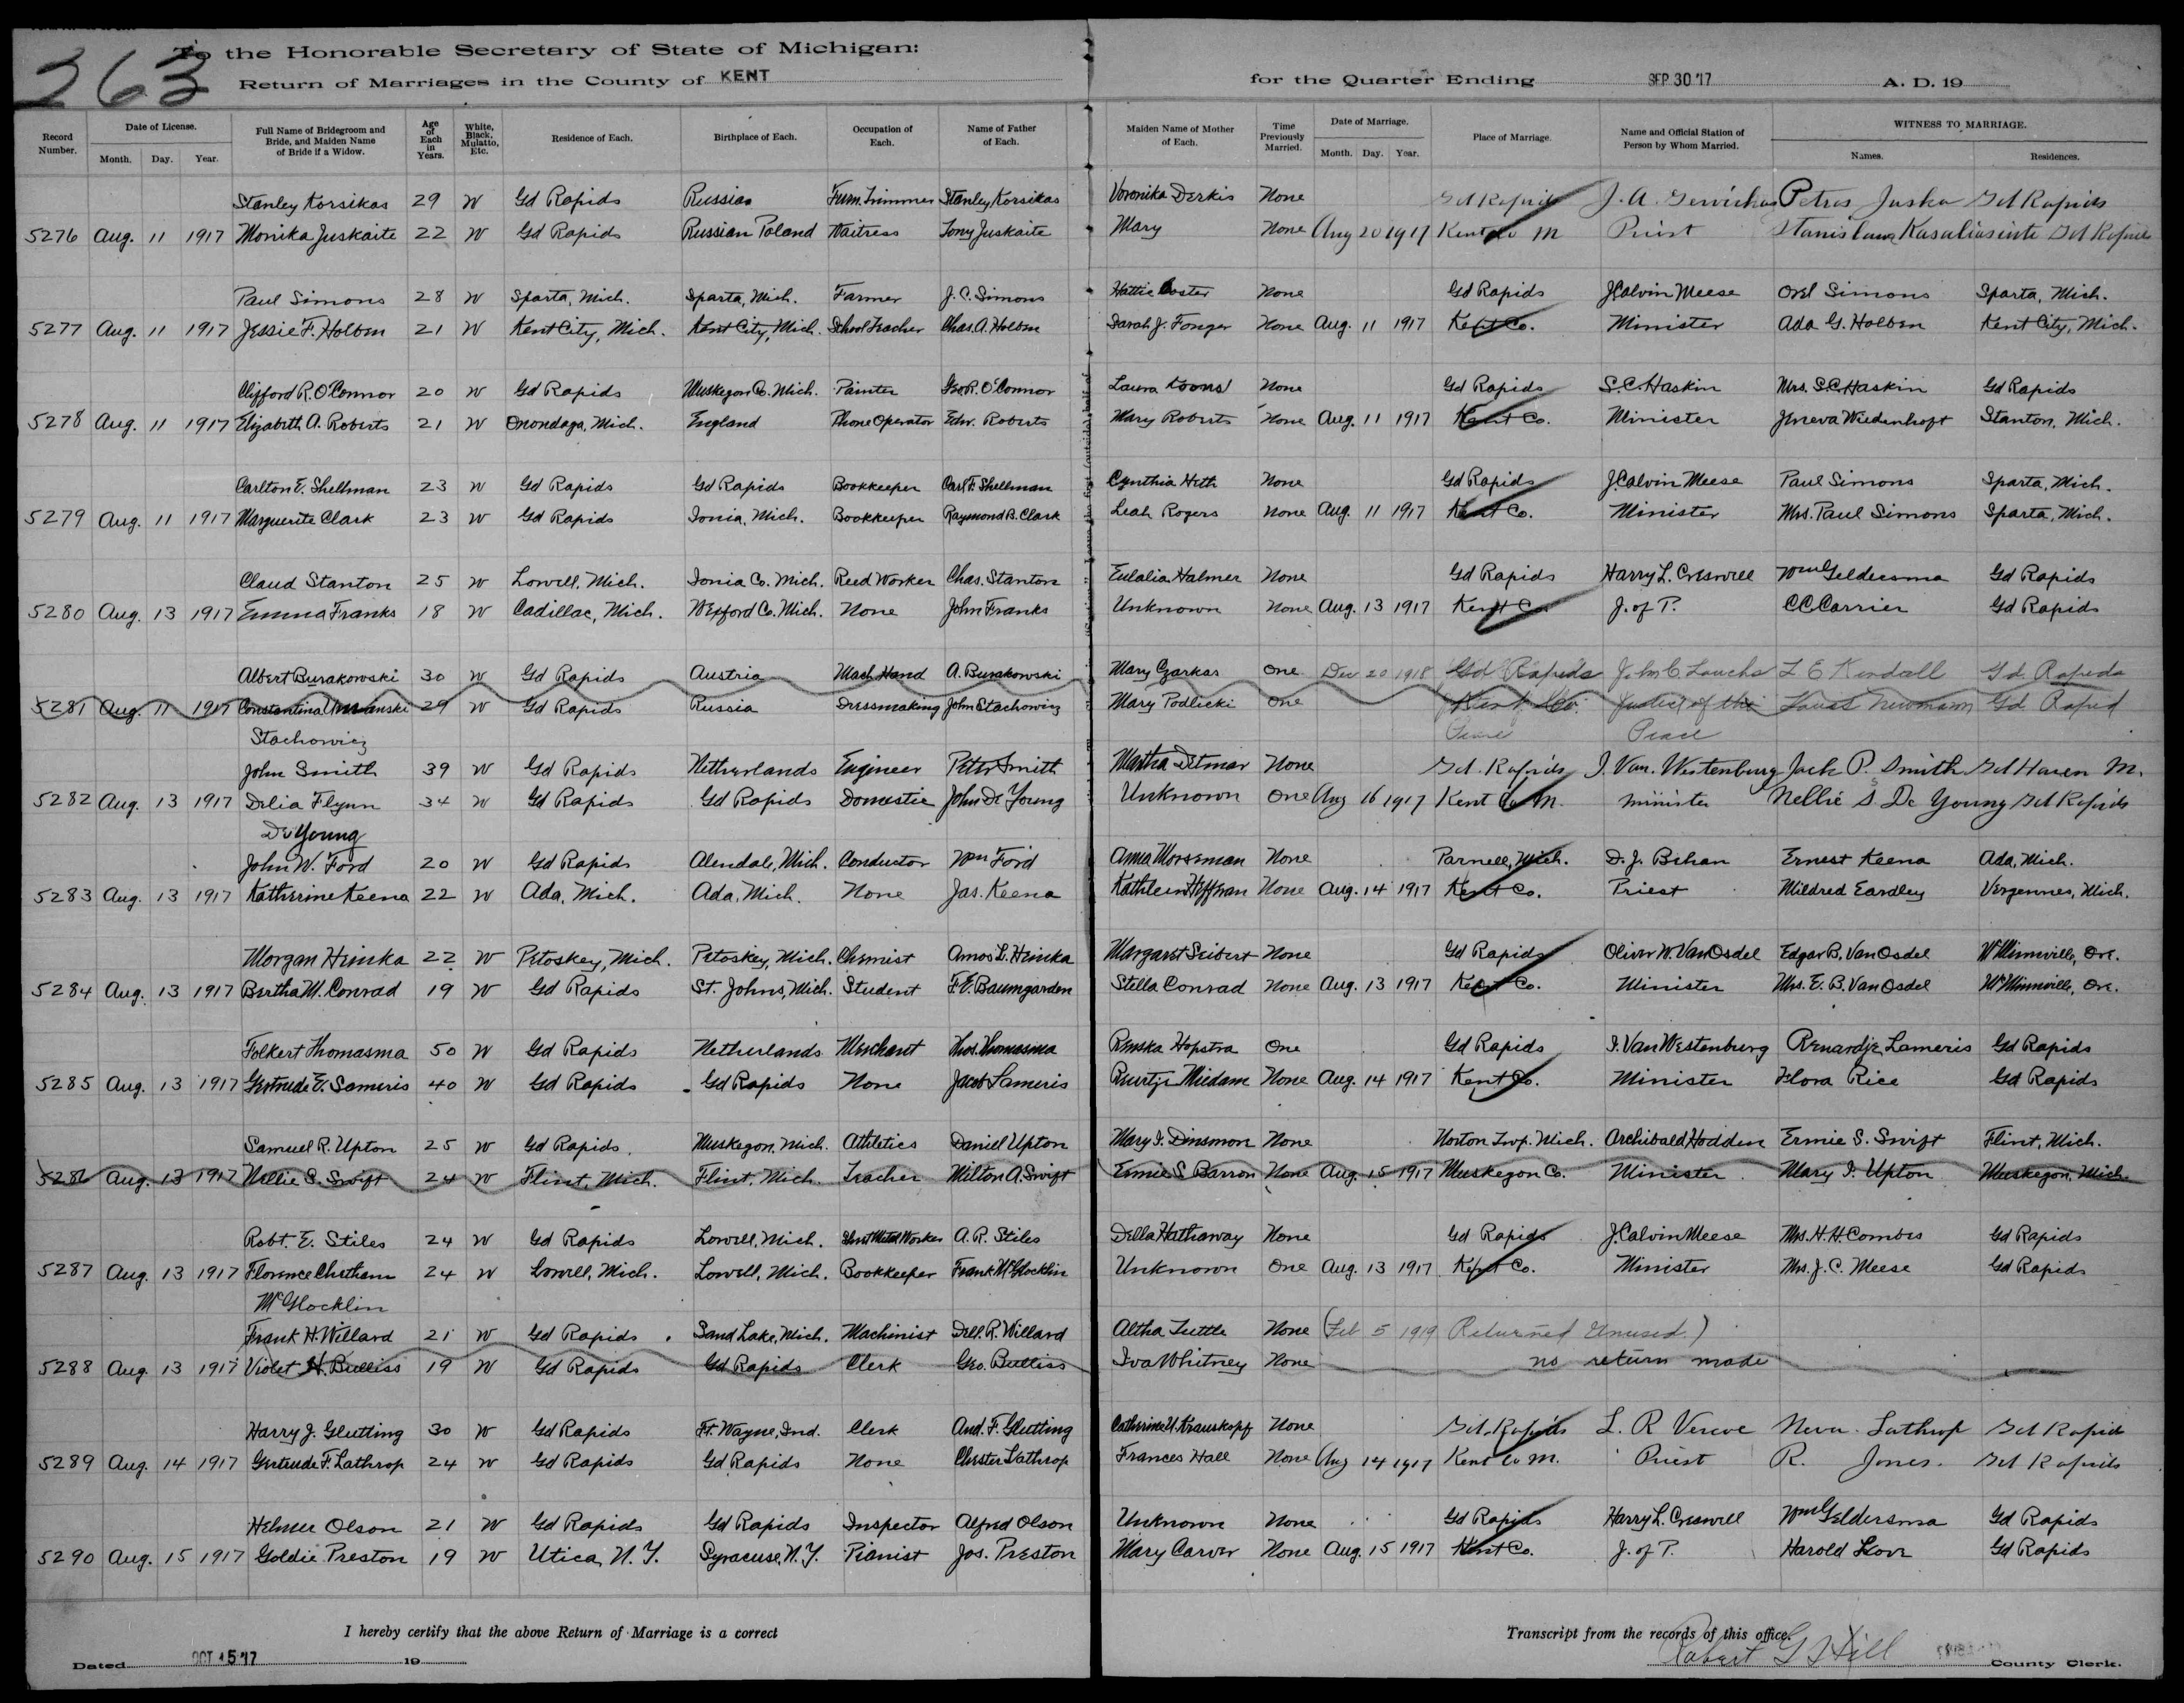 263
To the Honorable Secretary of State of Michigan:
Return of Marriages in the County of KENT for the Quarter Ending SEP 30 '17 A. D. 19
Record Number. Date of License. Month. Day. Year. Full Name of Bridegroom and Bride, and Maiden Name of Bride if a Widow. Age of Each in Years. White, Black, Mulatto, Etc. Residence of Each. Birthplace of Each. Occupation of Each. Name of Father of Each. Maiden Name of Mother of Each. Time Previously Married. Date of Marriage. Month. Day. Year. Place of Marriage. Name and Official Station of Person by Whom Married. WITNESS TO MARRIAGE. Names. Residences.
Stanley Korsikas 29 W Gd Rapids Russia Furn. Trimmer Stanley Korsikas Voronika Derkis None Gd Rapids J. A. Petros Juska Gd Rapids
5276 Aug. 11 1917 Monika Juskaite 22 W Gd Rapids Russian Poland Waitress Tony Juskaite Mary None Aug 20 1917 Kent Co M Priest Gd Rapids
Paul Simons 28 W Sparta, Mich. Sparta, Mich. Farmer J. C. Simons Hattie None Gd Rapids J Calvin Meese Orel Simons Sparta, Mich.
5277 Aug. 11 1917 Jessie F. Holben 21 W Kent City, Mich. Kent City, Mich. School Teacher Chas. A. Holben Sarah J. Fonger None Aug. 11 1917 Kent Co. Minister Ada G. Holben Kent City, Mich.
Clifford R. O'Connor 20 W Gd Rapids Muskegon Co. Mich. Painter Geo. R. O'Connor Laura Koons None Gd Rapids S. C. Haskin Mrs. S. C. Haskin Gd Rapids
5278 Aug. 11 1917 Elizabeth A. Roberts 21 W Onondaga, Mich. England Phone Operator Edw. Roberts Mary Roberts None Aug. 11 1917 Kent Co. Minister Jeneva Wiedenhoft Stanton, Mich.
Carlton E. Shellman 23 W Gd Rapids Gd Rapids Bookkeeper Carl F. Shellman Cynthia Heth None Gd Rapids J. Calvin Meese Paul Simons Sparta, Mich.
5279 Aug. 11 1917 Marguerite Clark 23 W Gd Rapids Ionia, Mich. Bookkeeper Raymond B. Clark Leah Rogers None Aug. 11 1917 Kent Co. Minister Mrs. Paul Simons Sparta, Mich.
Claud Stanton 25 W Lowell, Mich. Ionia Co. Mich. Reed Worker Chas. Stanton Eulalia Halmer None Gd Rapids Harry L. Creswell Wm Geldersma Gd Rapids
5280 Aug. 13 1917 Emma Franks 18 W Cadillac, Mich. Wexford Co. Mich. None John Franks Unknown None Aug. 13 1917 Kent Co. J. of P. C C Carrier Gd Rapids
Albert Burakowski 30 W Gd Rapids Austria Mach Hand A. Burakowski Mary Gzarkas One Dec 20 1918 Gd Rapids John C. Loucks L E Kendall Gd. Rapids
5281 Aug. 11 1917 Constantina 29 W Gd Rapids Russia Dressmaking John Stachowicz Mary Podlecki One Kent Co. Justice of the Louis Newmann Gd. Rapid
Stachowicz Peace Peace
John Smith 39 W Gd Rapids Netherlands Engineer Peter Smith Martha Detmar None Gd. Rapids J. Van. Westenburg Jack P. Smith Gd Haven M.
5282 Aug. 13 1917 Delia Flynn 34 W Gd Rapids Gd Rapids Domestic John De Young Unknown One Aug 16 1917 Kent Co M. minister Nellie S De Young Gd Rapids
De Young
John W. Ford 20 W Gd Rapids Alendale, Mich. Conductor Wm Ford Anna Worseman None Parnell, Mich. D. J. Behan Ernest Keena Ada, Mich.
5283 Aug. 13 1917 Katherine Keena 22 W Ada, Mich. Ada, Mich. None Jas. Keena Kathleen Heffnan None Aug. 14 1917 Kent Co. Priest Mildred Eardley Vergennes, Mich.
Morgan Heinka 22 W Petoskey, Mich. Petoskey, Mich. Chemist Amos L. Heinka Margaret Seibert None Gd Rapids Oliver W. Van Osdel Edgar B. Van Osdel McMinnville, Ore.
5284 Aug. 13 1917 Bertha M. Conrad 19 W Gd Rapids St. Johns, Mich. Student F. E. Baumgarden Stella Conrad None Aug. 13 1917 Kent Co. Minister Mrs. E. B. Van Osdel McMinnville, Ore.
Folkert Thomasma 50 W Gd Rapids Netherlands Merchant Thos. Thomasma Renska Hopstra One Gd Rapids J. Van Westenburg Renardje Lameris Gd Rapids
5285 Aug. 13 1917 Gertrude E. Lameris 40 W Gd Rapids Gd Rapids None Jacob Lameris Miedame None Aug. 14 1917 Kent Co. Minister Flora Rice Gd Rapids
Samuel R. Upton 25 W Gd Rapids. Muskegon, Mich. Athletics Daniel Upton Mary I. Dinsmon None Norton Twp. Mich. Archibald Hodden Ermie S. Swift Flint, Mich.
5286 Aug. 13 1917 Nellie C. Swift 24 W Flint, Mich. Flint, Mich. Teacher Milton A. Swift Ermie S. Barron None Aug. 15 1917 Muskegon Co. Minister Mary I. Upton Muskegon, Mich.
Robt. E. Stiles 24 W Gd Rapids Lowell, Mich. Sheet Metal Worker A. R. Stiles Della Hathaway None Gd Rapids J Calvin Meese Mrs. H. H Combes Gd Rapids
5287 Aug. 13 1917 Florence Chetham 24 W Lowell, Mich. Lowell, Mich. Bookkeeper Frank McGlocklin Unknown One Aug. 13 1917 Kent Co. Minister Mrs. J. C. Meese Gd Rapids
McGlocklin
Frank H. Willard 21 W Gd Rapids Sand Lake, Mich. Machinist Dell. R. Willard Altha Tuttle None (Feb 5 1919 Returned Unused.)
5288 Aug. 13 1917 Violet H. Bulliss 19 W Gd Rapids Gd Rapids Clerk Geo. Bulliss Iva Whitney None no return made
Harry J. Glutting 30 W Gd Rapids Ft. Wayne, Ind. Clerk And. F. Glutting Catherine U. Krauskopf None Gd. Rapids L. R Vereve Neva Lathrop Gd Rapids
5289 Aug. 14 1917 Gertrude F. Lathrop 24 W Gd Rapids Gd Rapids None Chester Lathrop Frances Hall None Aug 14 1917 Kent Co M. Priest R. Jones. Gd Rapids
Helmer Olson 21 W Gd Rapids Gd Rapids Inspector Alfred Olson Unknown None Gd Rapids Harry L. Creswell Wm Geldersma Gd Rapids
5290 Aug. 15 1917 Goldie Preston 19 W Utica, N. Y. Syracuse, N. Y. Pianist Jos. Preston Mary Carver None Aug. 15 1917 Kent Co. J. of P. Harold Gd Rapids
I hereby certify that the above Return of Marriage is a correct Transcript from the records of this office.
Dated OCT 15 '17 19 Robert G Hill County Clerk.